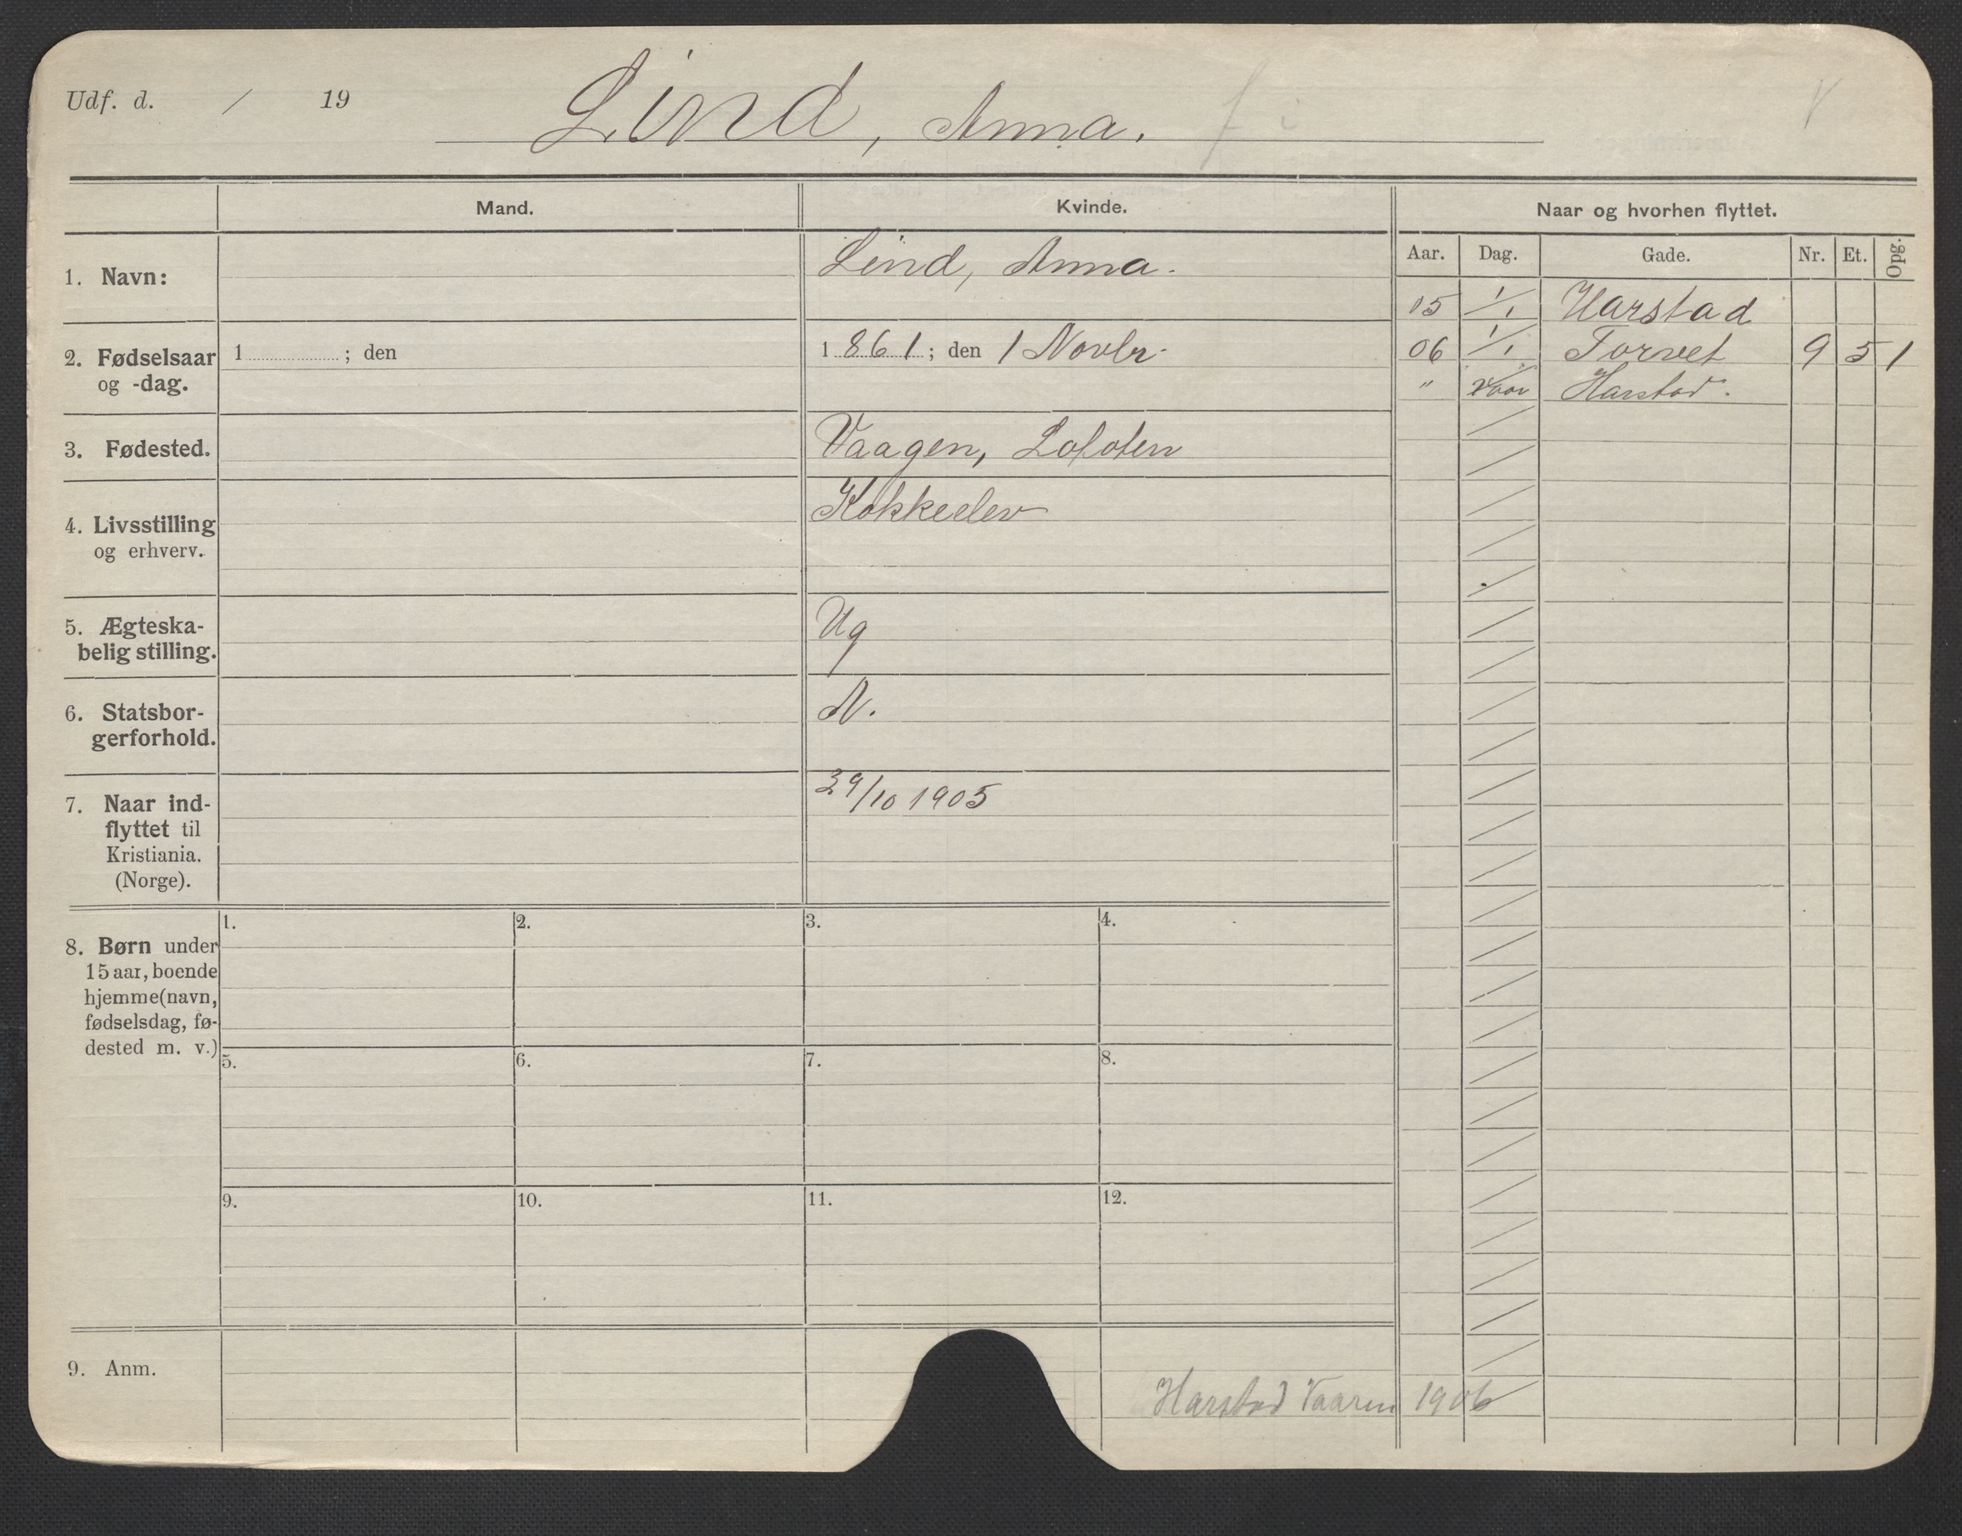 Udf. d. / 19
Lind, Anna.
Mand.
Kvinde.
Naar og hvorhen flyttet.
Aar. Dag. Gade. Nr. Et. Opg.
1. Navn:
Lind, Anna.
15 1/1 Harstad
06 1/1 Torvet 9 5 1
" Vaar Harstad.
2. Fødselsaar
og -dag.
1 ; den
1861; den 1 Novbr.
3. Fødested.
Vaagen, Lofoten
4. Livsstilling
og erhverv.
Kokkeelev
5. Ægteska-
belig stilling.
Ug
6. Statsbor-
gerforhold.
N.
7. Naar ind-
flyttet til
Kristiania.
(Norge).
29/10 1905
8. Børn under
15 aar, boende
hjemme (navn,
fødselsdag, fø-
dested m. v.)
1. 2. 3. 4.
5. 6. 7. 8.
9. 10. 11. 12.
9. Anm.
Harstad Vaaren 1906